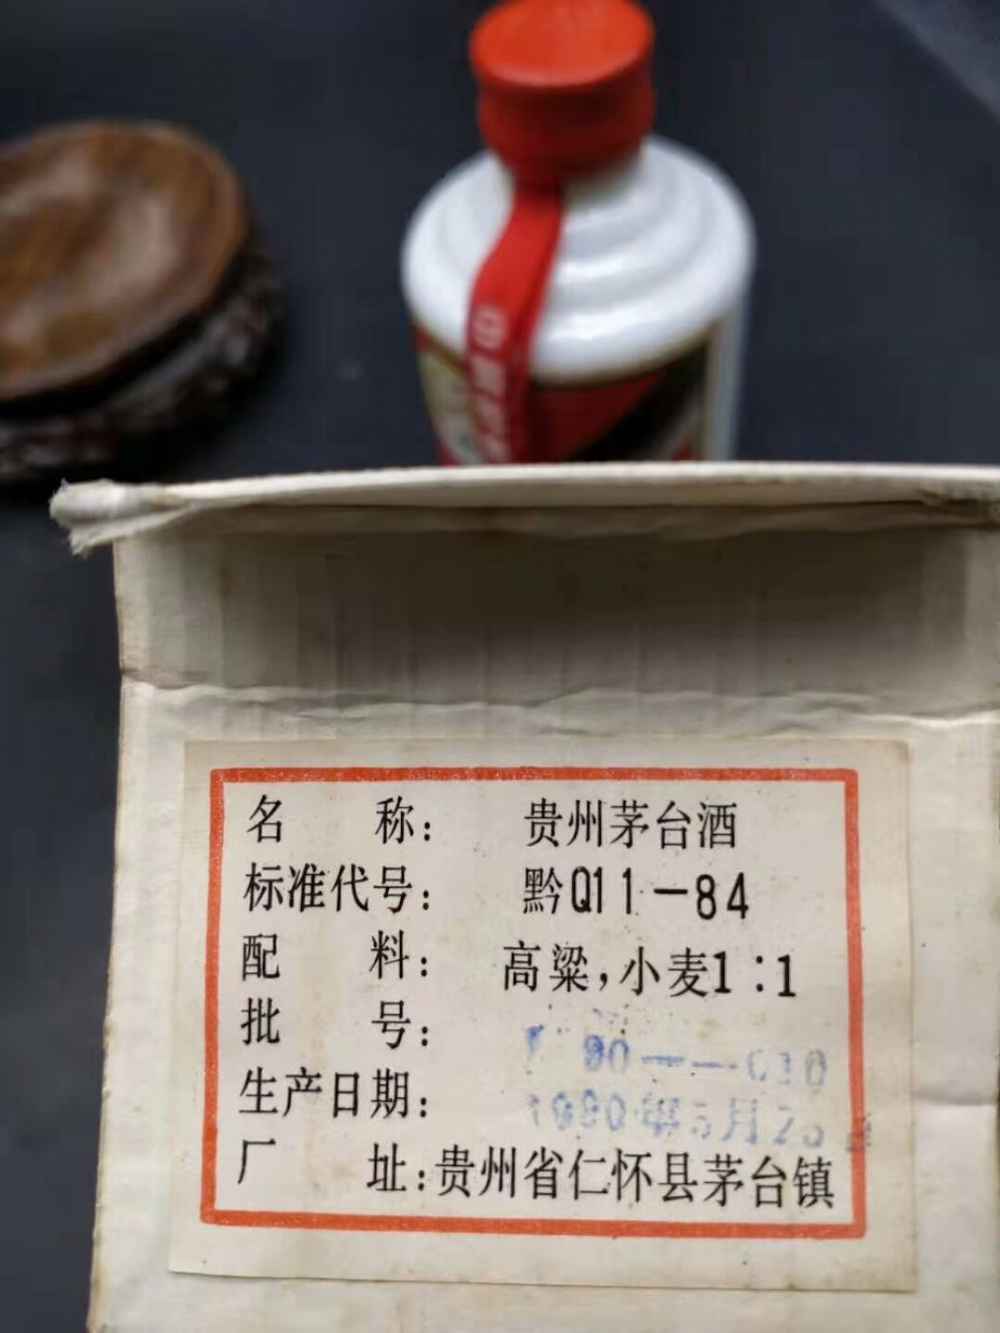 中国贵州
名 称： 贵州茅台酒
标准代号： 黔Q11－84
配 料： 高粱，小麦1：1
批 号： 90——010
生产日期： 1990年5月25
厂 址：贵州省仁怀县茅台镇